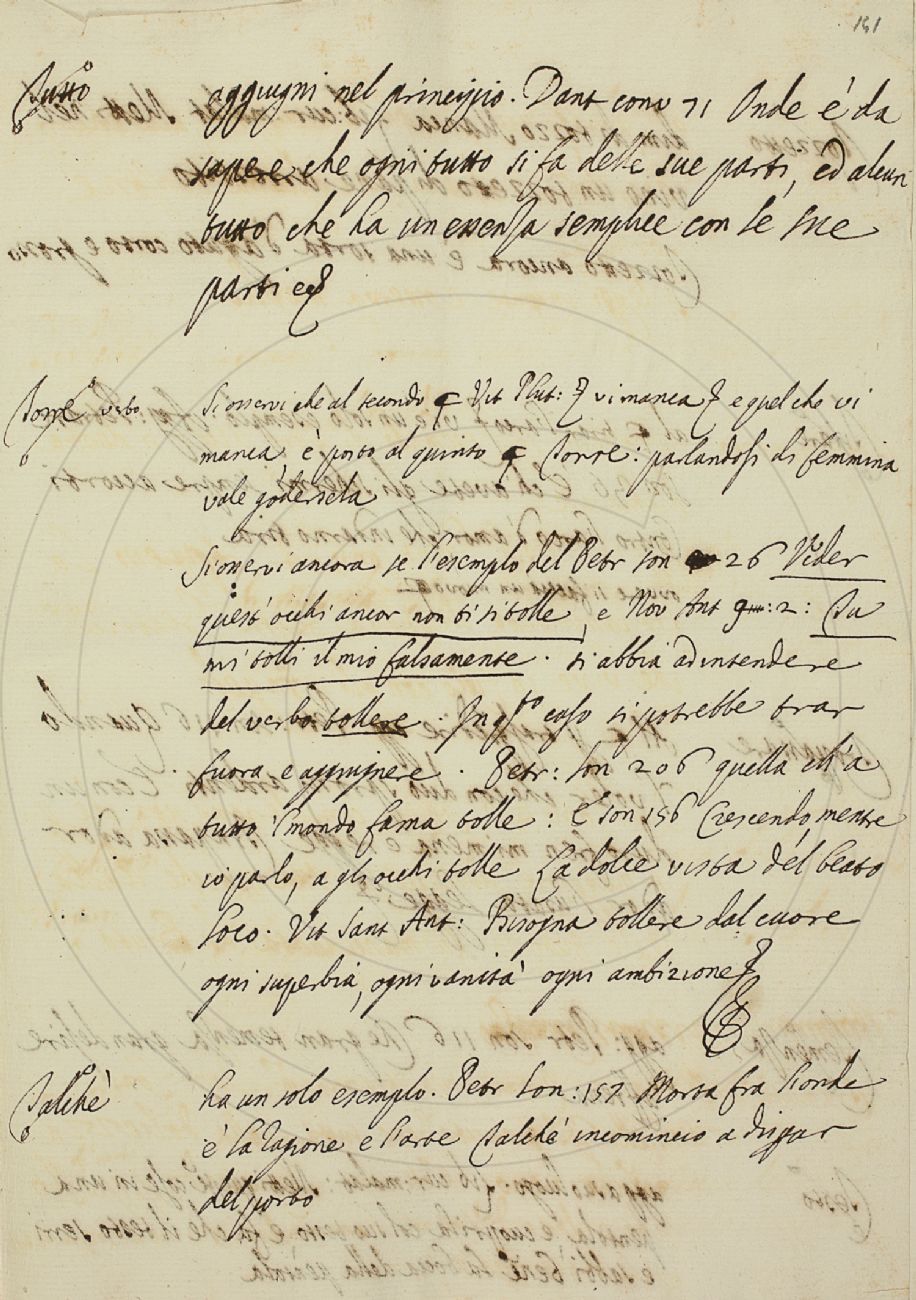 151
Tutto
aggiugni nel principio. Dant conv 71 Onde è da
sapere che ogni tutto si fa delle sue parti, ed alcun
tutto che ha un essenza semplice con le sue
parti
Torre verbo
Si osservi che al secondo Vit Plut: vi manca e quel che vi
manca è posto al quinto Torre: parlandosi di femmina
vale godersela
Si osservi ancora se l'esemplo del Petr son 26 Veder
quest' occhi ancor non ti si tolle, e Nov Ant 2: Tu
mi tolli il mio falsamente. si abbia ad intendere
del verbo tollere. In qsto caso si potrebbe trar
fuora e aggiugnere. Petr: son 206 quella ch'a
tutto 'l mondo fama tolle: E son 156 Crescendo, mentre
io parlo, a gli occhi tolle La dolce vista del beato
loco. Vit Sant Ant: Bisogna tollere dal cuore
ogni superbia, ogni vanità ogni ambizione
Talchè
ha un solo esemplo. Petr son: 157 Morta fra l'onde
è la ragione e l'arte Talchè incomincio a disperar
del porto